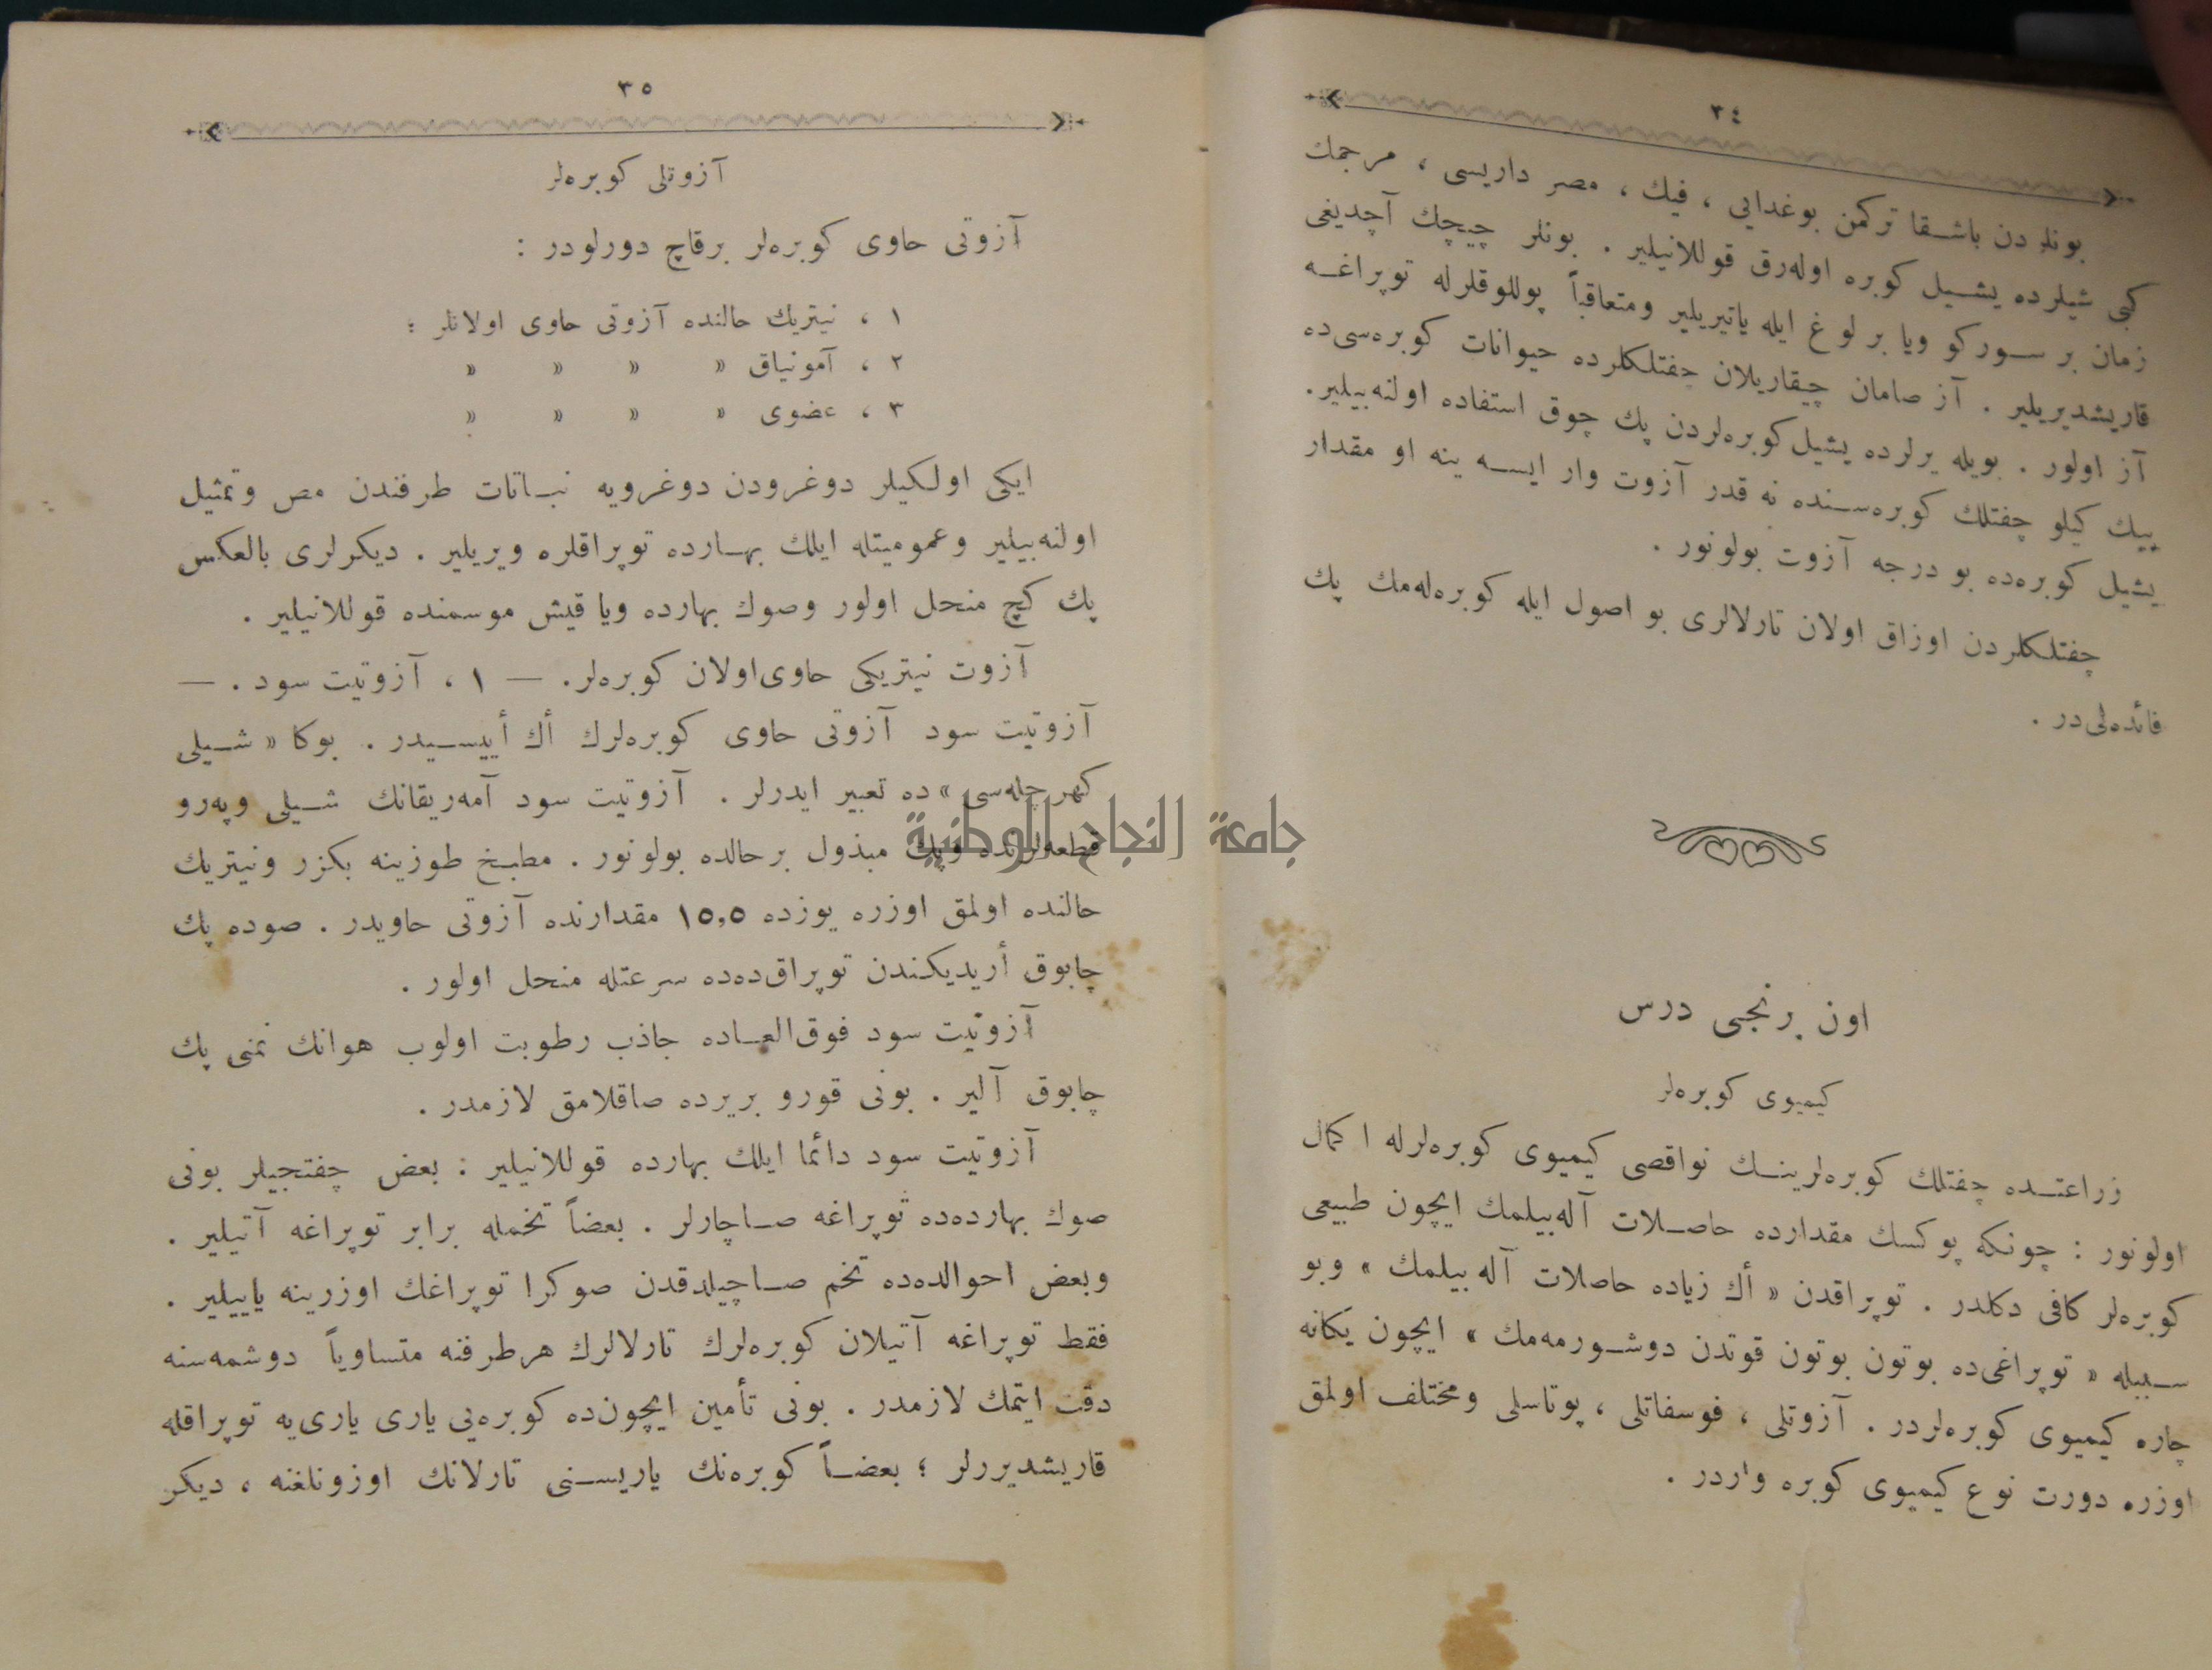 ٣٤
بونلردن باشقا تركمن بوغدايى ، فيك ، مصر داريسى ، مرجمك
كبى شيلرده يشيل كوبره اوله‌رق قوللانيلير . بونلر چيچك آچديغى
زمان بر سوركو ويا بر لوغ ايله ياتيريلير ومتعاقباً پوللوقلرله توپراغه
قاريشديريلير . آز صامان چيقاريلان چفتلكلرده حيوانات كوبره‌سى‌ده
آز اولور . بويله يرلرده يشيل كوبره‌لردن پك چوق استفاده اولنه‌بيلير.
بيك كيلو چفتلك كوبره‌سنده نه قدر آزوت وار ايسه ينه او مقدار
يشيل كوبره‌ده بو درجه آزوت بولونور .
چفتلكلردن اوزاق اولان تارلالرى بو اصول ايله كوبره‌له‌مك پك
فائده‌لى‌در .
اون برنجى درس
كيميوى كوبره‌لر
زراعتده چفتلك كوبره‌لرينك نواقصى كيميوى كوبره‌لرله اكمال
اولونور : چونكه يوكسك مقدارده حاصلات آله‌بيلمك ايچون طبيعى
كوبره‌لر كافى دكلدر . توپراقدن « أك زياده حاصلات آله بيلمك » وبو
سببله « توپراغى‌ده بوتون بوتون قوتدن دوشورمه‌مك » ايچون يكانه
چاره كيميوى كوبره‌لردر . آزوتلى ، فوسفاتلى ، پوتاسلى ومختلف اولمق
اوزره دورت نوع كيميوى كوبره واردر .
٣٥
آزوتلى كوبره‌لر
آزوتى حاوى كوبره‌لر برقاچ دورلودر :
١ ، نيتريك حالنده آزوتى حاوى اولانلر :
٢ ، آمونياق « « « «
٣ ، عضوى « « « «
ايكى اولكيلر دوغرودن دوغرويه نباتات طرفندن مص وتمثيل
اولنه‌بيلير وعموميتله ايلك بهارده توپراقلره ويريلير . ديكرلرى بالعكس
پك كچ منحل اولور وصوك بهارده ويا قيش موسمنده قوللانيلير .
آزوت نيتريكى حاوى‌اولان كوبره‌لر. — ١ ، آزوتيت سود . —
آزوتيت سود آزوتى حاوى كوبره‌لرك أك أييسيدر . بوكا « شيلى
كهرچله‌سى » ده تعبير ايدرلر . آزوتيت سود آمه‌ريقانك شيلى وپه‌رو
قطعه‌لرنده وپك مبذول برحالده بولونور . مطبخ طوزينه بكزر ونيتريك
حالنده اولمق اوزره يوزده ١٥,٥ مقدارنده آزوتى حاويدر . صوده پك
چابوق أريديكندن توپراق‌ده‌ده سرعتله منحل اولور .
آزوتيت سود فوق‌العاده جاذب رطوبت اولوب هوانك نمنى پك
چابوق آلير . بونى قورو بريرده صاقلامق لازمدر .
آزوتيت سود دائما ايلك بهارده قوللانيلير : بعض چفتجيلر بونى
صوك بهارده‌ده توپراغه صاچارلر . بعضاً تخمله برابر توپراغه آتيلير .
وبعض احوالده‌ده تخم صاچيلدقدن صوكرا توپراغك اوزرينه ياييلير .
فقط توپراغه آتيلان كوبره‌لرك تارلالرك هرطرفنه متساوياً دوشمه‌سنه
دقت ايتمك لازمدر . بونى تأمين ايچون‌ده كوبره‌يى يارى يارى‌يه توپراقله
قاريشديررلر ؛ بعضاً كوبره‌نك ياريسنى تارلانك اوزونلغنه ، ديكر
جامعة النجاح الوطنية